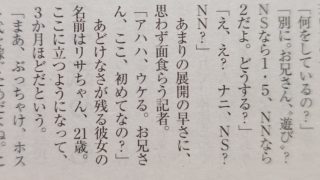 「何をしているの？」
「別に。お兄さん、遊び？
NSなら1・5、NNなら
2だよ。どうする？」
「え、え？　ナニ、NS？
NN？」
　あまりの展開の早さに、
思わず面食らう記者。
「アハハ、ウケる。お兄さ
ん、ここ、初めてなの？」
　あどけなさが残る彼女の
名前はリサちゃん、21歳。
ここに立つようになって、
3か月ほどだという。
「まあ、ぶっちゃけ、ホス